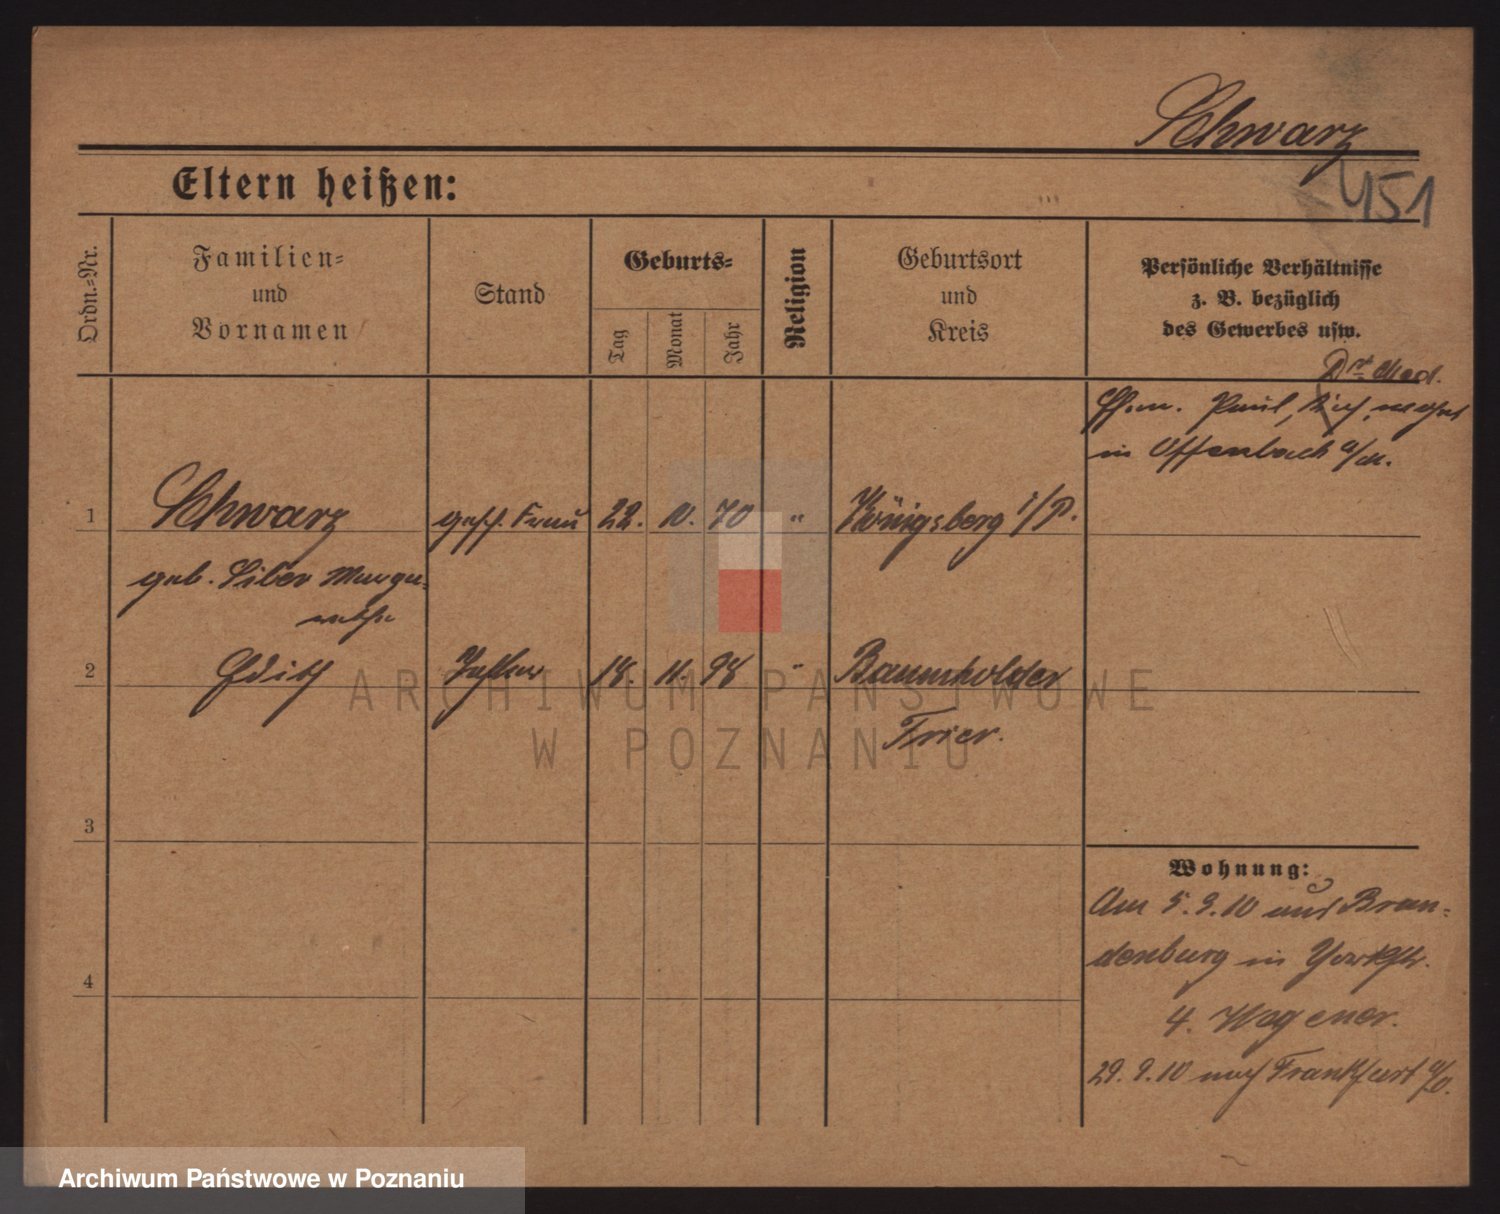 Schwarz
451
Eltern heißen:
Ordn.-Nr.
Familien-
und
Vornamen
Stand
Geburts-
Tag
Monat
Jahr
Religion
Geburtsort
und
Kreis
Persönliche Verhältnisse
z. B. bezüglich
des Gewerbes usw.
Dr. Med.
Ehem. Paul, wohnt
in Offenbach a/M.
1
Schwarz
gesch. Frau
22.
10.
70
"
Königsberg i/P.
geb. Siber Marga-
rethe
2
Edith
Tochter
18.
11.
98
"
Baumholder
Trier.
3
Wohnung:
Am 5.3.10 aus Bran-
denburg in Yorkstr.
4
4. Wegener.
29.9.10 nach Frankfurt a/O.
ARCHIWUM PAŃSTWOWE
W POZNANIU
Archiwum Państwowe w Poznaniu